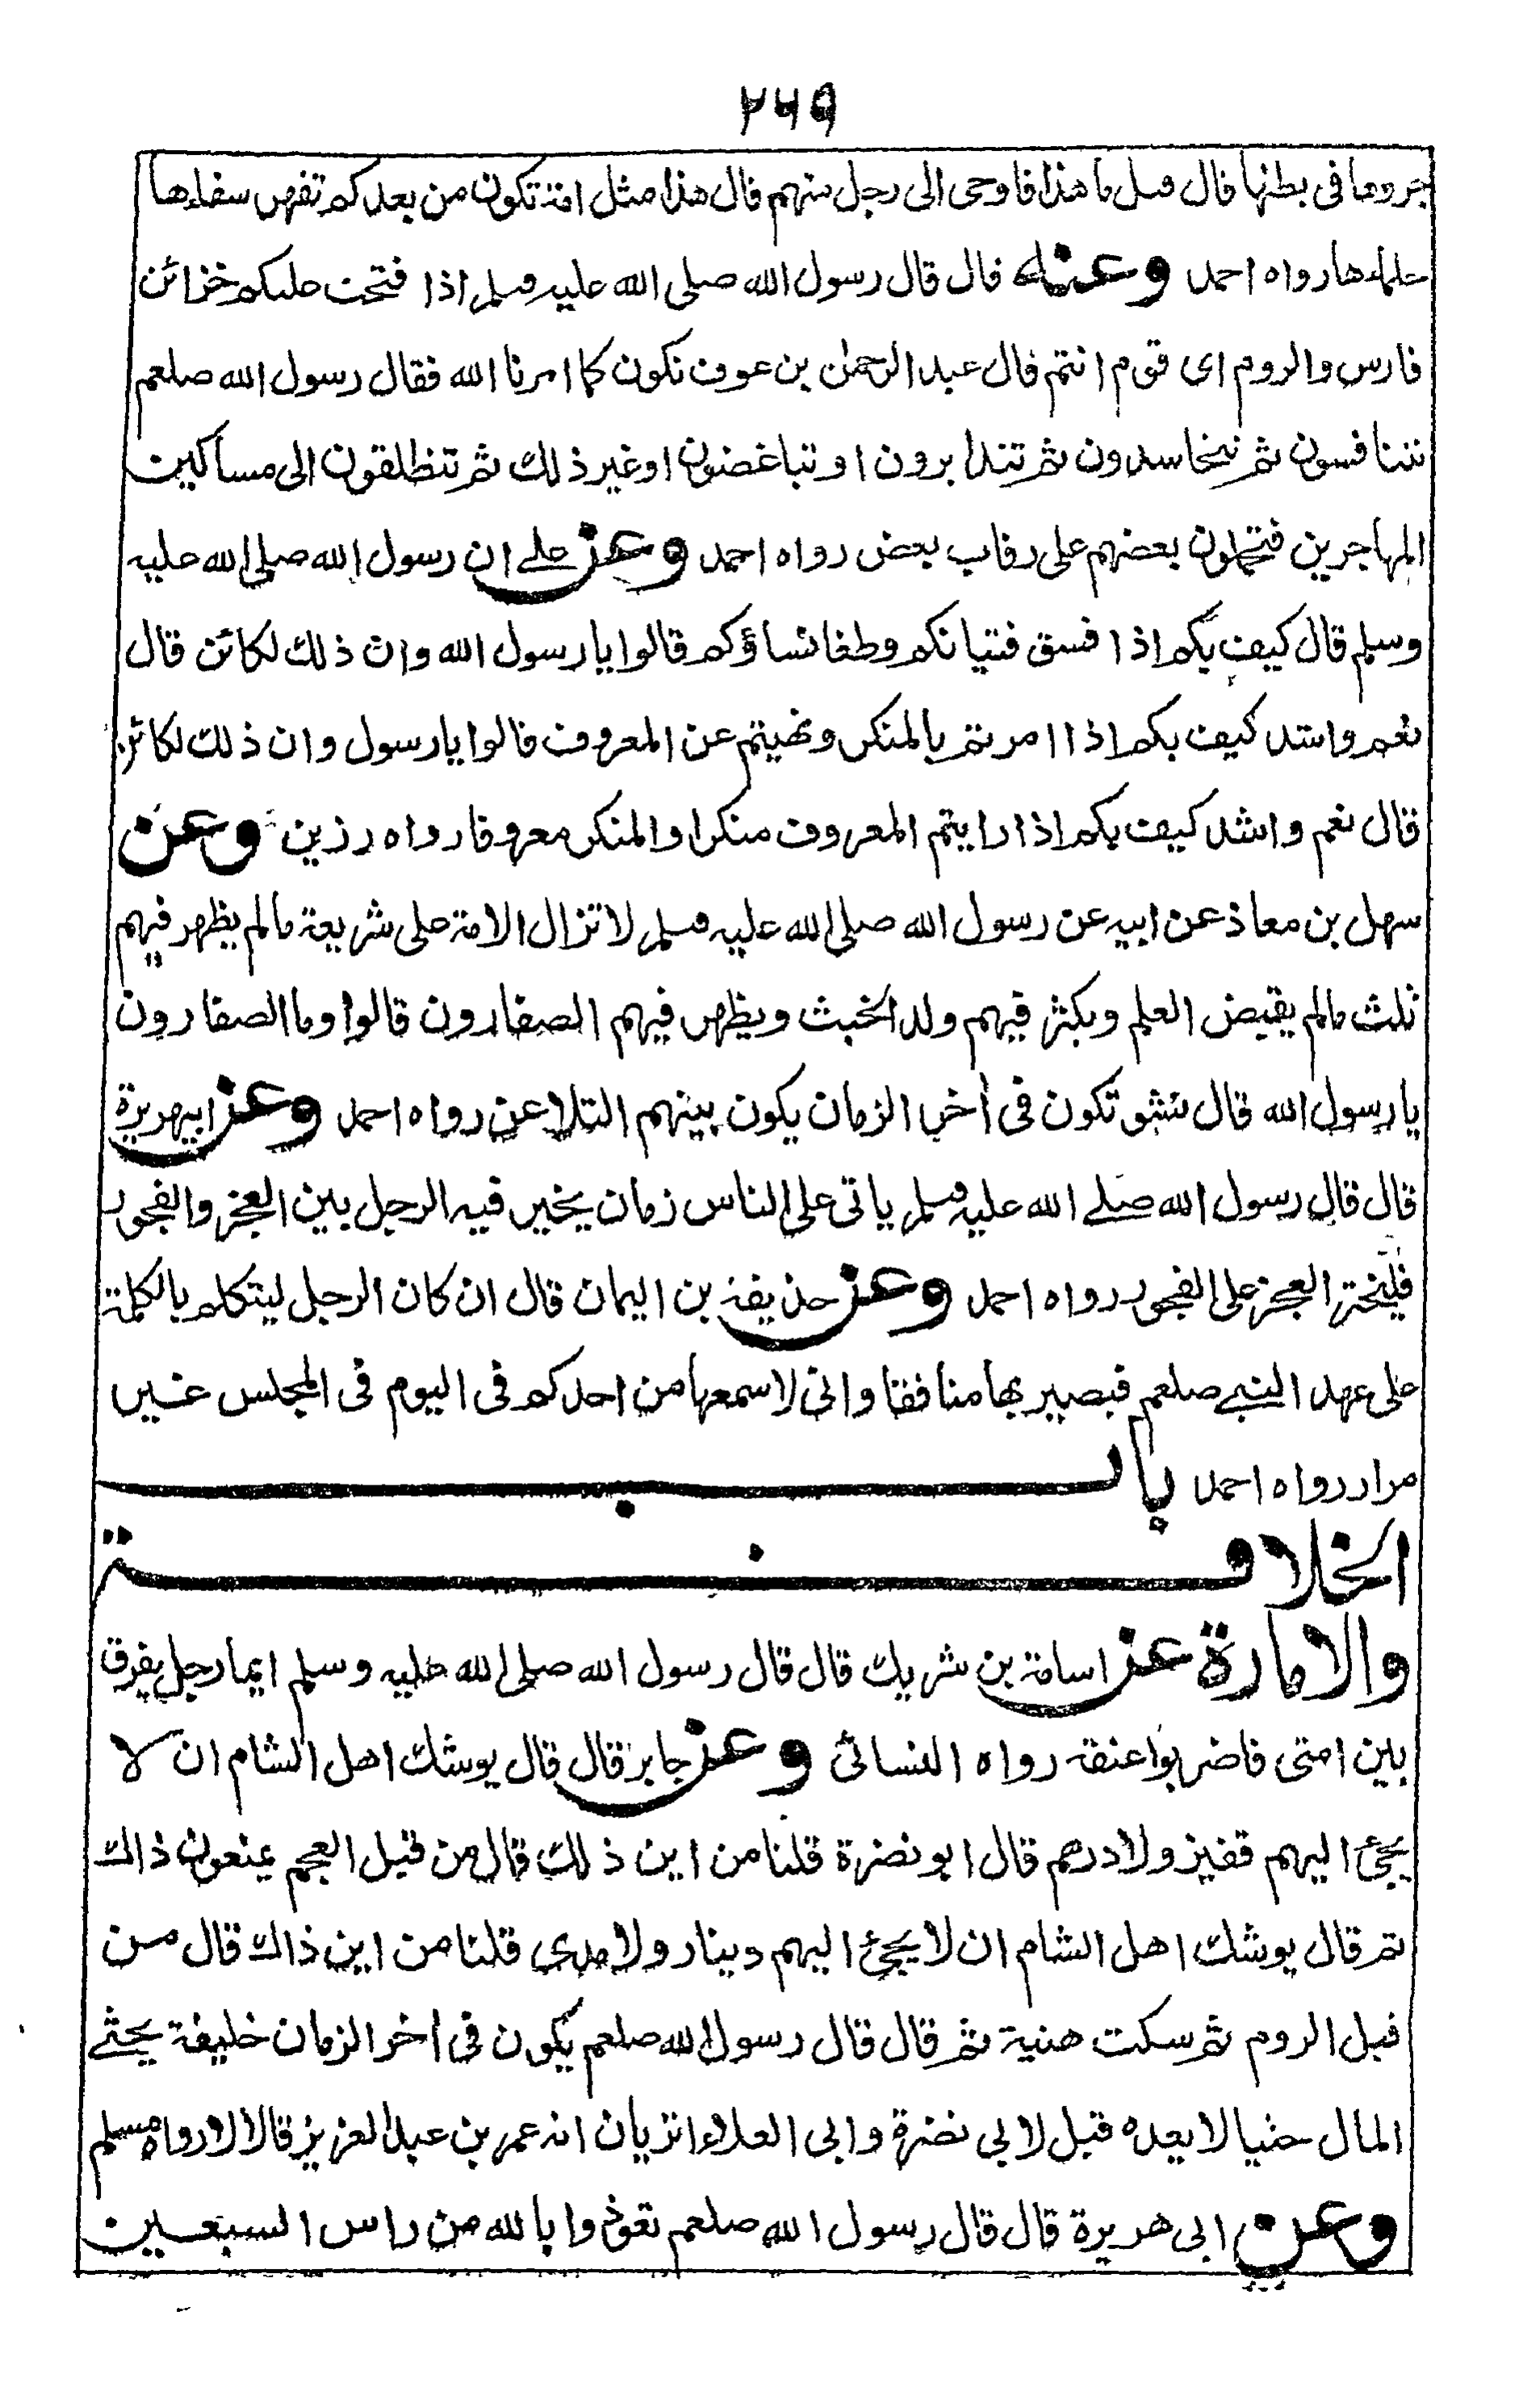 ٢٦٩
جروها فى بطنها قال قيل ما هذا فاوحى الى رجل منهم قال هذا مثل امة تكون من بعدكم تقهر سفاءها
حلماءها رواه احمد وعنه قال قال رسول الله صلى الله عليه وسلم اذا فتحت عليكم خزائن
فارس والروم اى قوم انتم قال عبد الرحمن بن عوف نكون كما امرنا الله فقال رسول الله صلعم
تتنافسون ثم تتحاسدون ثم تتدابرون او تتباغضون او غير ذلك ثم تنطلقون الى مساكين
المهاجرين فتحملون بعضهم على رقاب بعض رواه احمد وعن على ان رسول الله صلى الله عليه
وسلم قال كيف بكم اذا فسق فتيانكم وطغا نساؤكم قالوا يا رسول الله وان ذلك لكائن قال
نعم واشد كيف بكم اذا امرتم بالمنكر ونهيتم عن المعروف قالوا يا رسول وان ذلك لكائن
قال نعم واشد كيف بكم اذا رايتم المعروف منكرا والمنكر معروفا رواه رزين وعن
سهل بن معاذ عن ابيه عن رسول الله صلى الله عليه وسلم لا تزال الامة على شريعة مالم يظهر فيهم
ثلث مالم يقبض العلم ويكثر فيهم ولد الخبث ويظهر فيهم الصفارون قالوا وما الصفارون
يا رسول الله قال نشو تكون فى أخر الزمان يكون بينهم التلاعن رواه احمد وعن ابيهريرة
قال قال رسول الله صلے الله عليه وسلم ياتى على الناس زمان يخير فيه الرجل بين العجز والفجور
فليختر العجز على الفجور رواه احمد وعن حذيفة بن اليمان قال ان كان الرجل ليتكلم بالكلمة
على عهد النبے صلعم فيصير بها منافقا وانى لاسمعها من احدكم فى اليوم فى المجلس عشر
مرار رواه احمد باب
الخلافة
والامارة عن اسامة بن شريك قال قال رسول الله صلى الله عليه وسلم ايما رجل يفرق
بين امتى فاضربوا عنقه رواه النسائى وعن جابر قال قال يوشك اهل الشام ان لا
يجئ اليهم قفيز ولا درهم قال ابو نضرة قلنا من اين ذلك قال من قبل العجم يمنعون ذاك
ثم قال يوشك اهل الشام ان لا يجئ اليهم دينار ولا مدى قلنا من اين ذاك قال من
قبل الروم ثم سكت هنية ثم قال قال رسول الله صلعم يكون فى أخر الزمان خليفة يحثے
المال حثيا لا يعده قيل لابى نضرة وابى العلاء اتريان انه عمر بن عبد العزيز قالا لا رواه مسلم
وعن ابى هريرة قال قال رسول الله صلعم تعوذوا بالله من راس السبعين